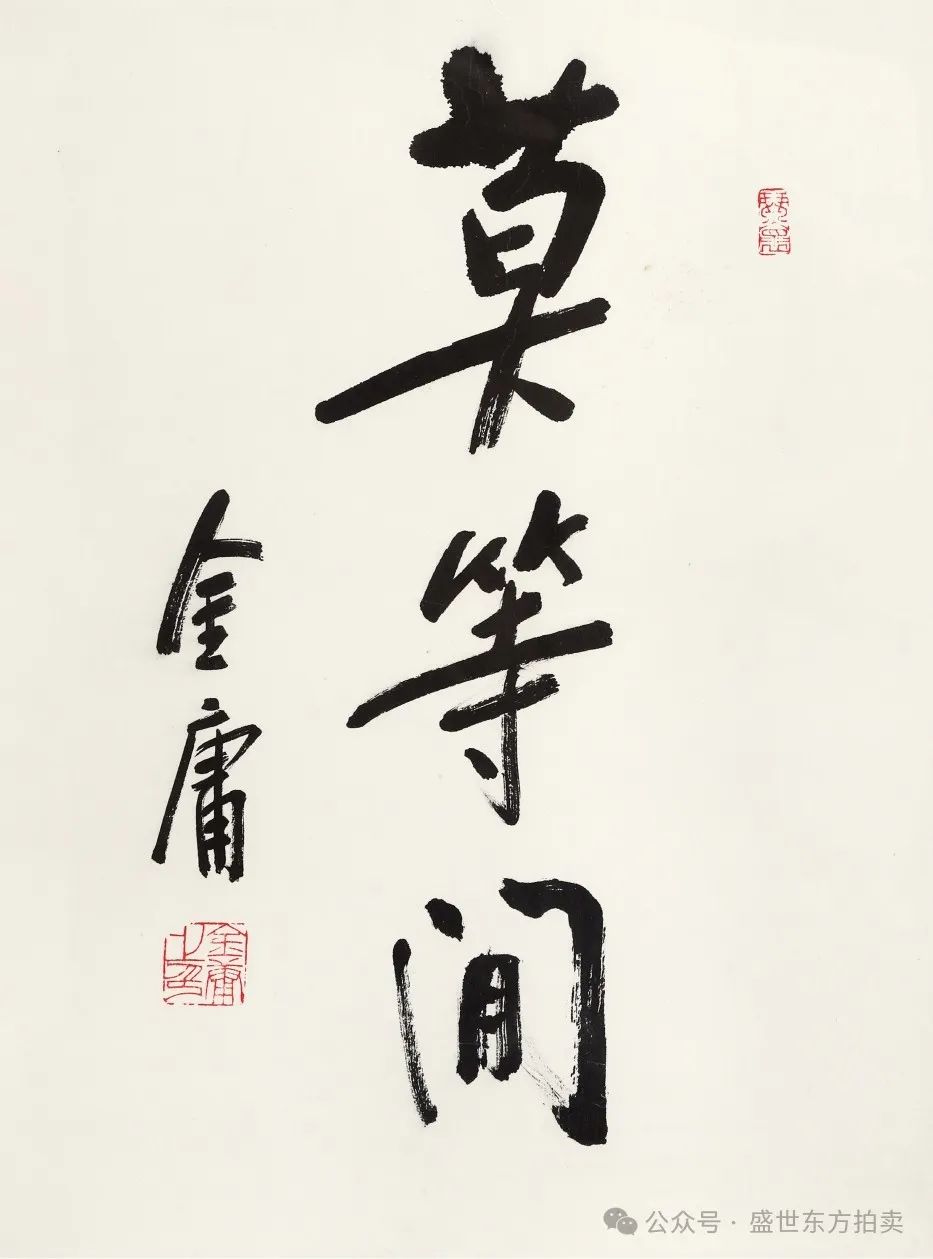 莫等閒
金庸
金庸之印
公众号 · 盛世东方拍卖